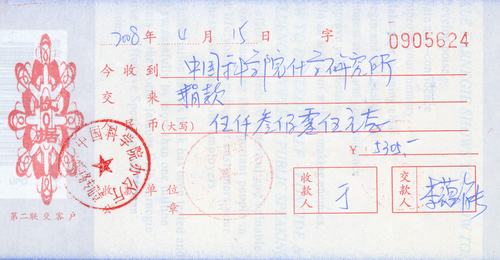 2008年 4月 15日 字 0905624
今收到 中国科学院化学研究所
交来 捐款
民币(大写) 伍仟叁佰零伍元整
￥ 5305.-
收款单位
章
收款人
交款人 李蕴能
第二联交客户
收据
中国科学院办公厅